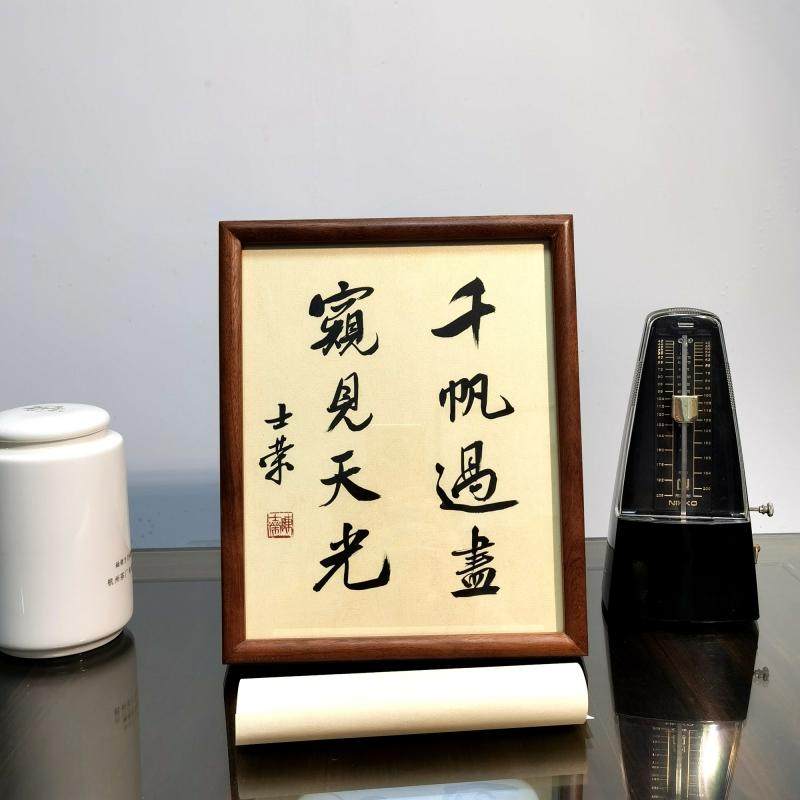 千帆過盡
窺見天光
士榮
NIKKO